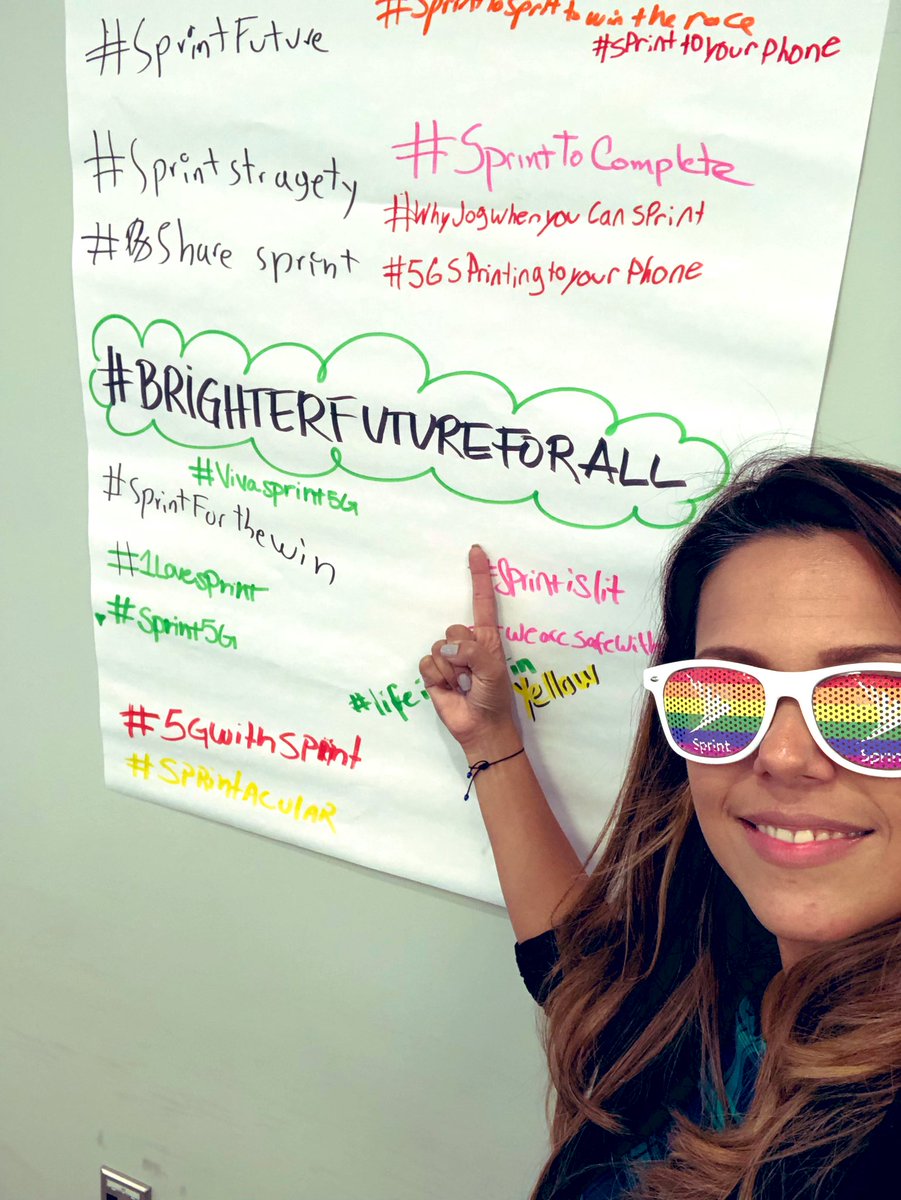 #SprintFuture
#Sprint to Sprint to win the race
#sprint to your phone
#Sprint stragety
#SprintToComplete
#Share sprint
#Why Jog when you Can sprint
#5G SPrinting to your Phone
#BRiGHTERFUTUREFORALL
#Vivasprint5G
#SprintForthewin
#1Lovesprint
#Sprint5G
#Sprintislit
wearesafewith
#life in
yellow
#5GwithSprint
#SPRintACULAR
Sprint
Sprint